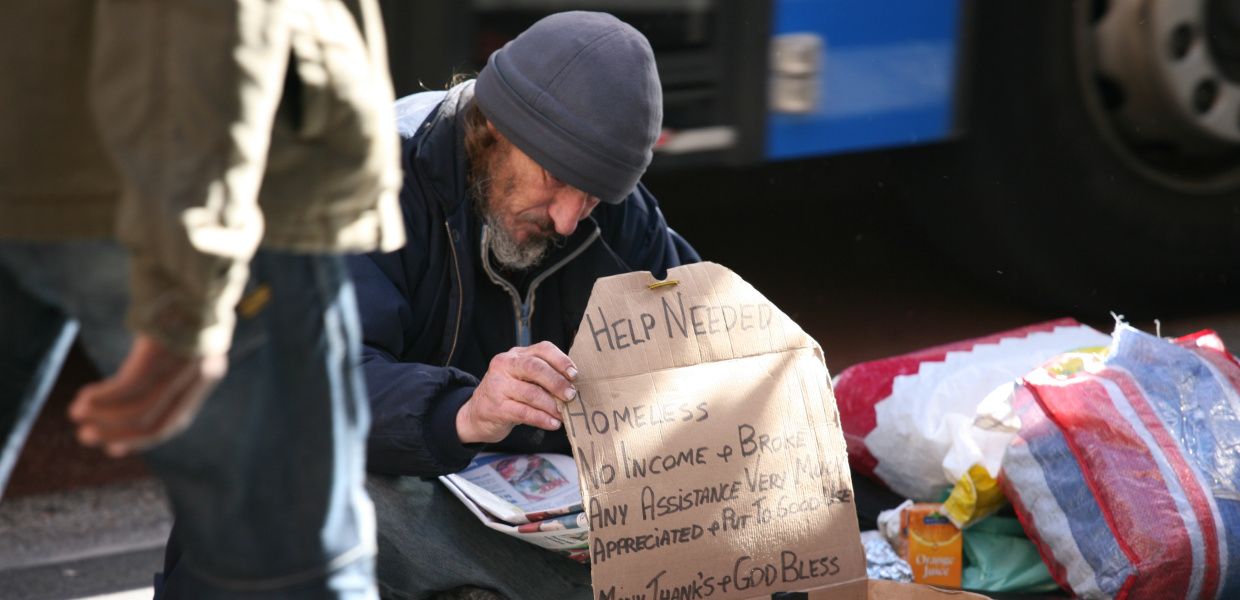 HELP NEEDED
HOMELESS
NO INCOME & BROKE
ANY ASSISTANCE VERY MUCH
APPRECIATED & PUT TO GOOD USE
MANY THANK'S & GOD BLESS
Orange
Juice